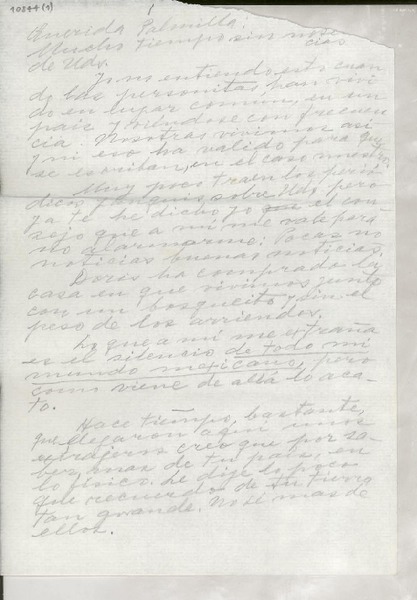 10844(1)
1
Querida Palmilla:
Mucho tiempo sin noti
cias
de Uds.
Yo no entiendo esto cuan
do las personitas han vivi
do en lugar común, en un
país y viéndose con frecuen
cia. Nosotras vivimos así
y ni eso ha valido para que
se escriban, en el caso
Muy poco traen los perió
dicos yanquis sobre Uds. pero
ya te he dicho yo el con
sejo que a mí me vale para
no alarmarme: Pocas no
noticias buenas noticias.
Doris ha comprado la
casa en que vivimos junto
con un bosquecito y sin el
peso de los arriendos.
Lo que a mí me extraña
es el silencio de todo mi
mundo mexicano, pero
como viene de allá lo aca-
to.
Hace tiempo, bastante,
que llegaron aquí unos
extrajeros creo que por sa-
ber cosas de tu país, en
lo físico. Le dije lo poco
que recuerdo de su tierra
tan grande. No vi más de
ellos.